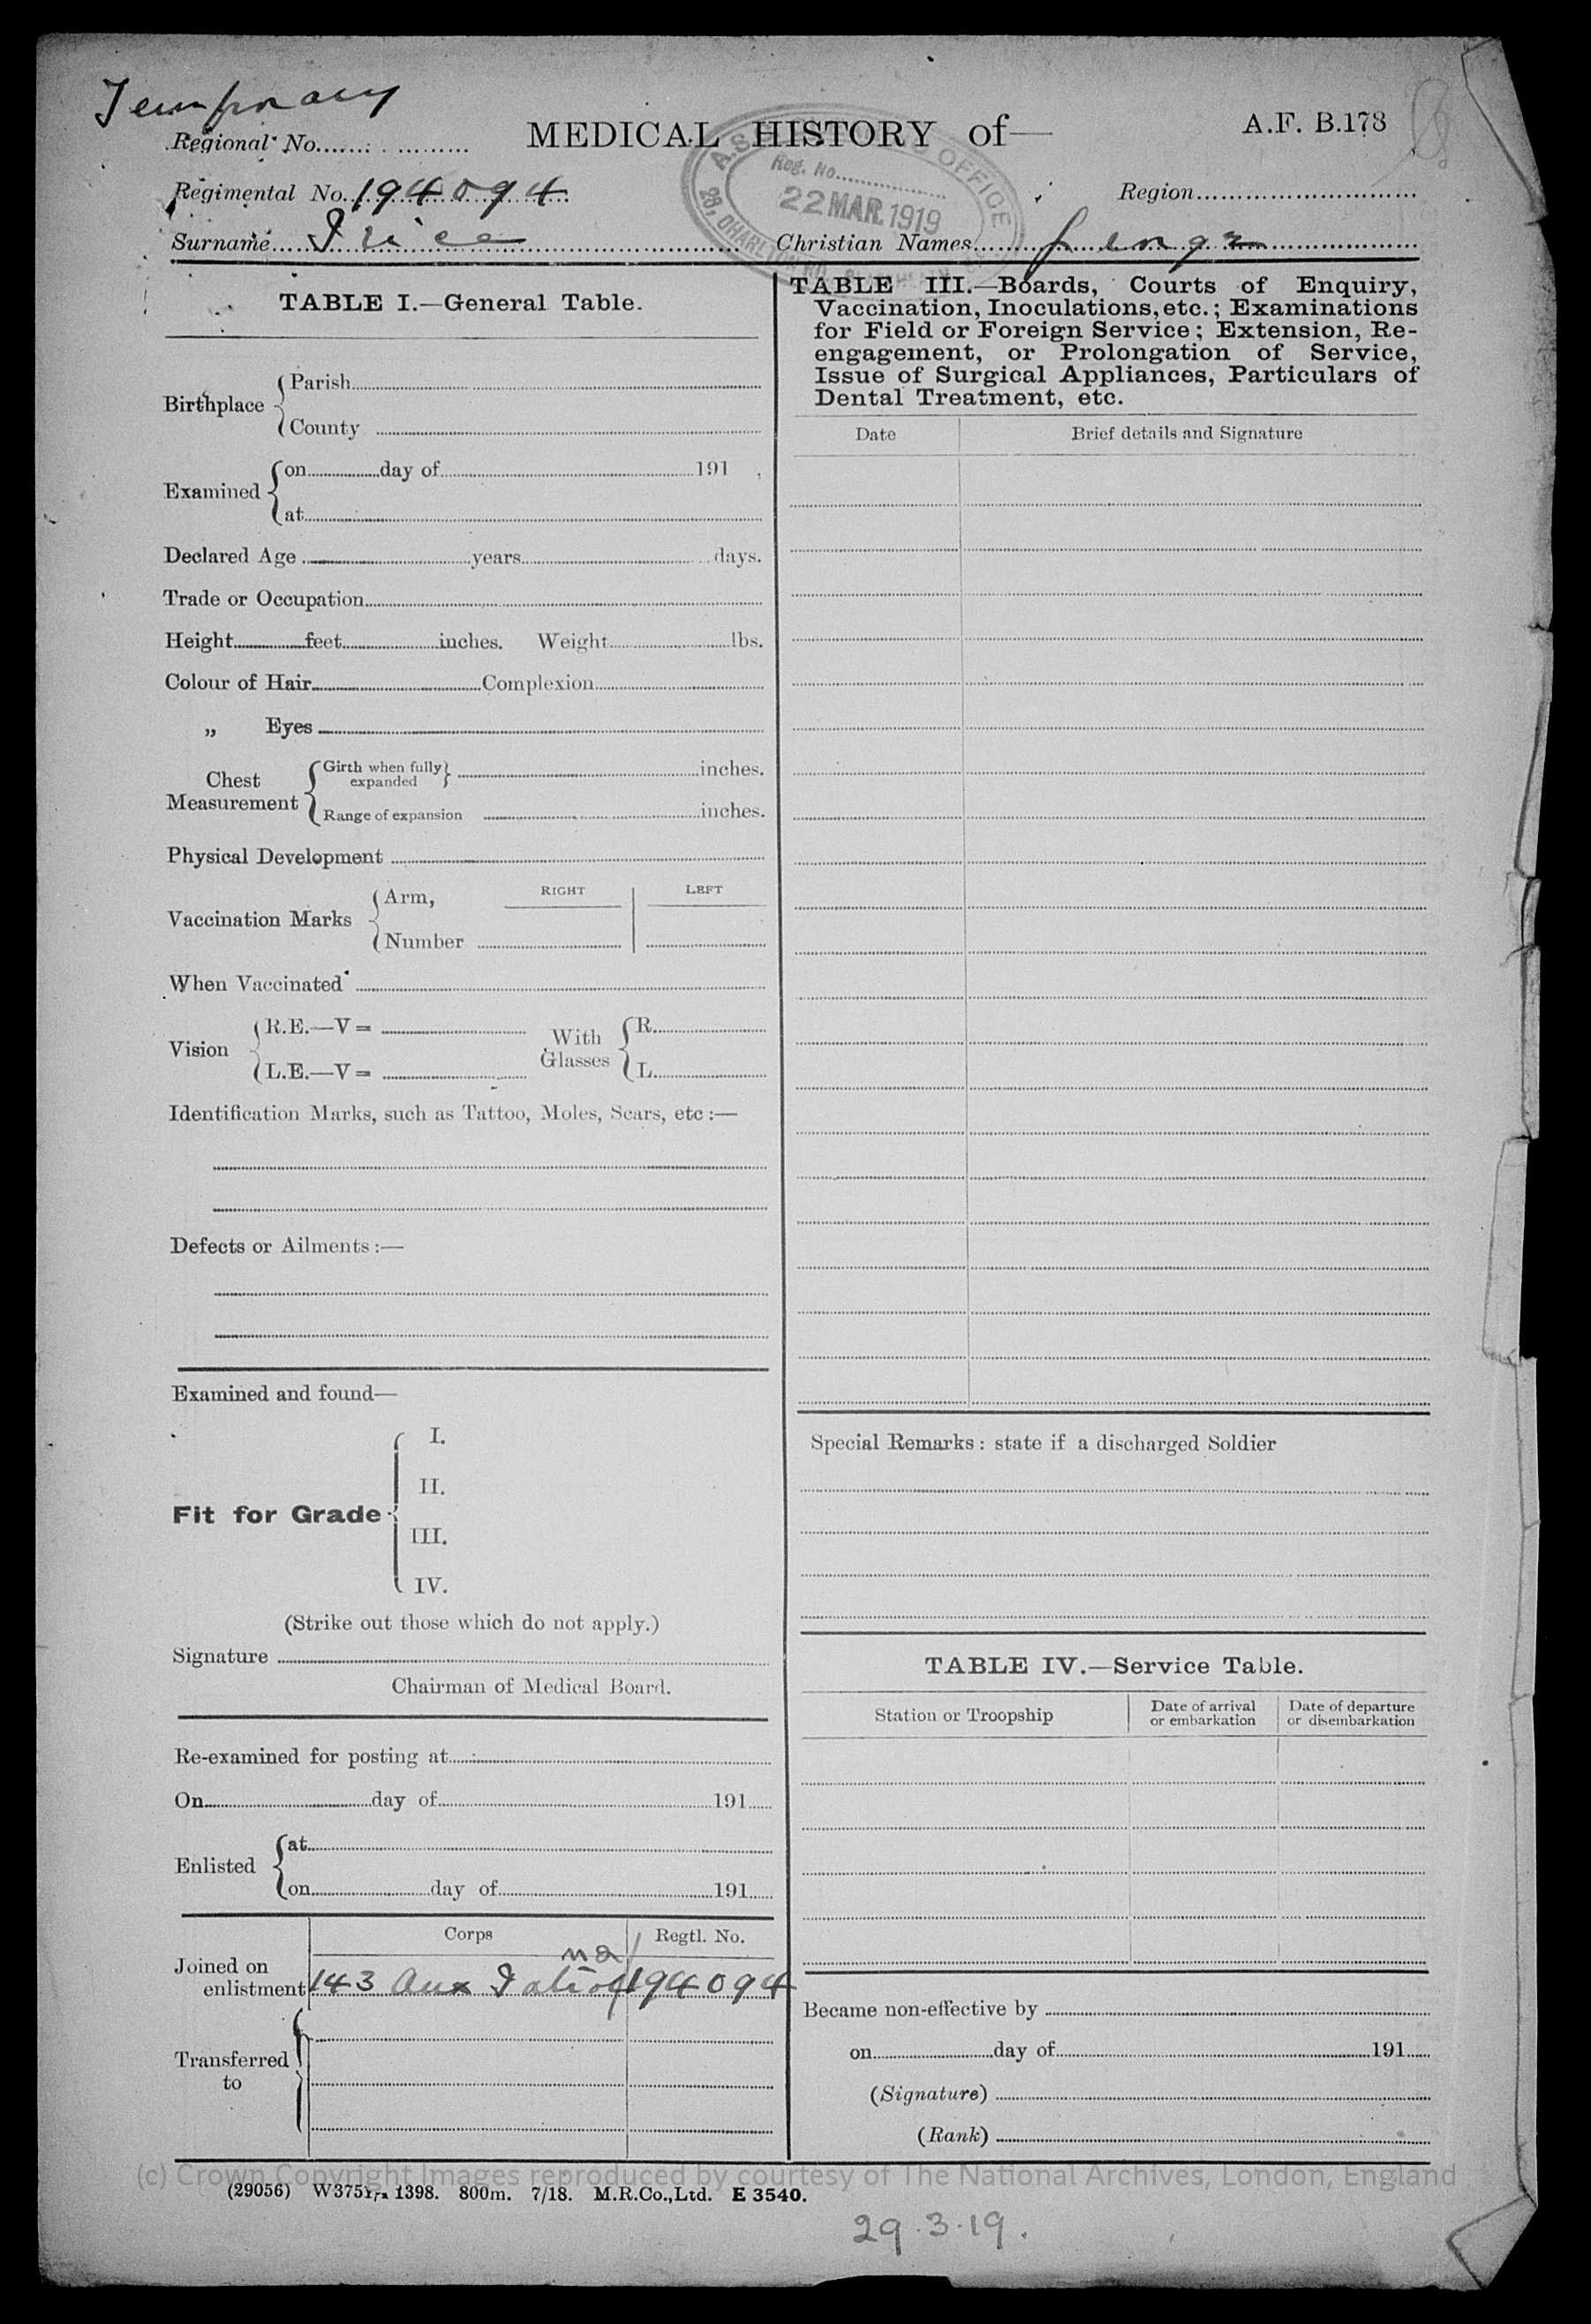 Temporary
Regional No.
MEDICAL HISTORY of—
A.F. B.178
Regimental No. 194094
Region
Surname Price
Christian Names
A.S.
OFFICE
Reg. No.
22 MAR. 1919
28, CHARLTON RD.
TABLE I.—General Table.
Birthplace
Parish
County
Examined
on day of 191
at
Declared Age years days.
Trade or Occupation
Height feet inches. Weight lbs.
Colour of Hair Complexion
„ Eyes
Chest Measurement
Girth when fully expanded inches.
Range of expansion inches.
Physical Development
Vaccination Marks
Arm, RIGHT LEFT
Number
When Vaccinated
Vision
R.E.—V=
L.E.—V=
With Glasses
R.
L.
Identification Marks, such as Tattoo, Moles, Scars, etc:—
Defects or Ailments:—
Examined and found—
Fit for Grade
I.
II.
III.
IV.
(Strike out those which do not apply.)
Signature
Chairman of Medical Board.
Re-examined for posting at
On day of 191
Enlisted
at
on day of 191
Corps Regtl. No.
Joined on enlistment 143 Aux 194094
Transferred to
TABLE III.—Boards, Courts of Enquiry,
Vaccination, Inoculations, etc.; Examinations
for Field or Foreign Service; Extension, Re-
engagement, or Prolongation of Service,
Issue of Surgical Appliances, Particulars of
Dental Treatment, etc.
Date Brief details and Signature
Special Remarks: state if a discharged Soldier
TABLE IV.—Service Table.
Station or Troopship
Date of arrival or embarkation
Date of departure or disembarkation
Became non-effective by
on day of 191
(Signature)
(Rank)
(c) Crown Copyright Images reproduced by courtesy of The National Archives, London, England
(29056) 1398. 800m. 7/18. M.R.Co.,Ltd. E 3540.
29.3.19.